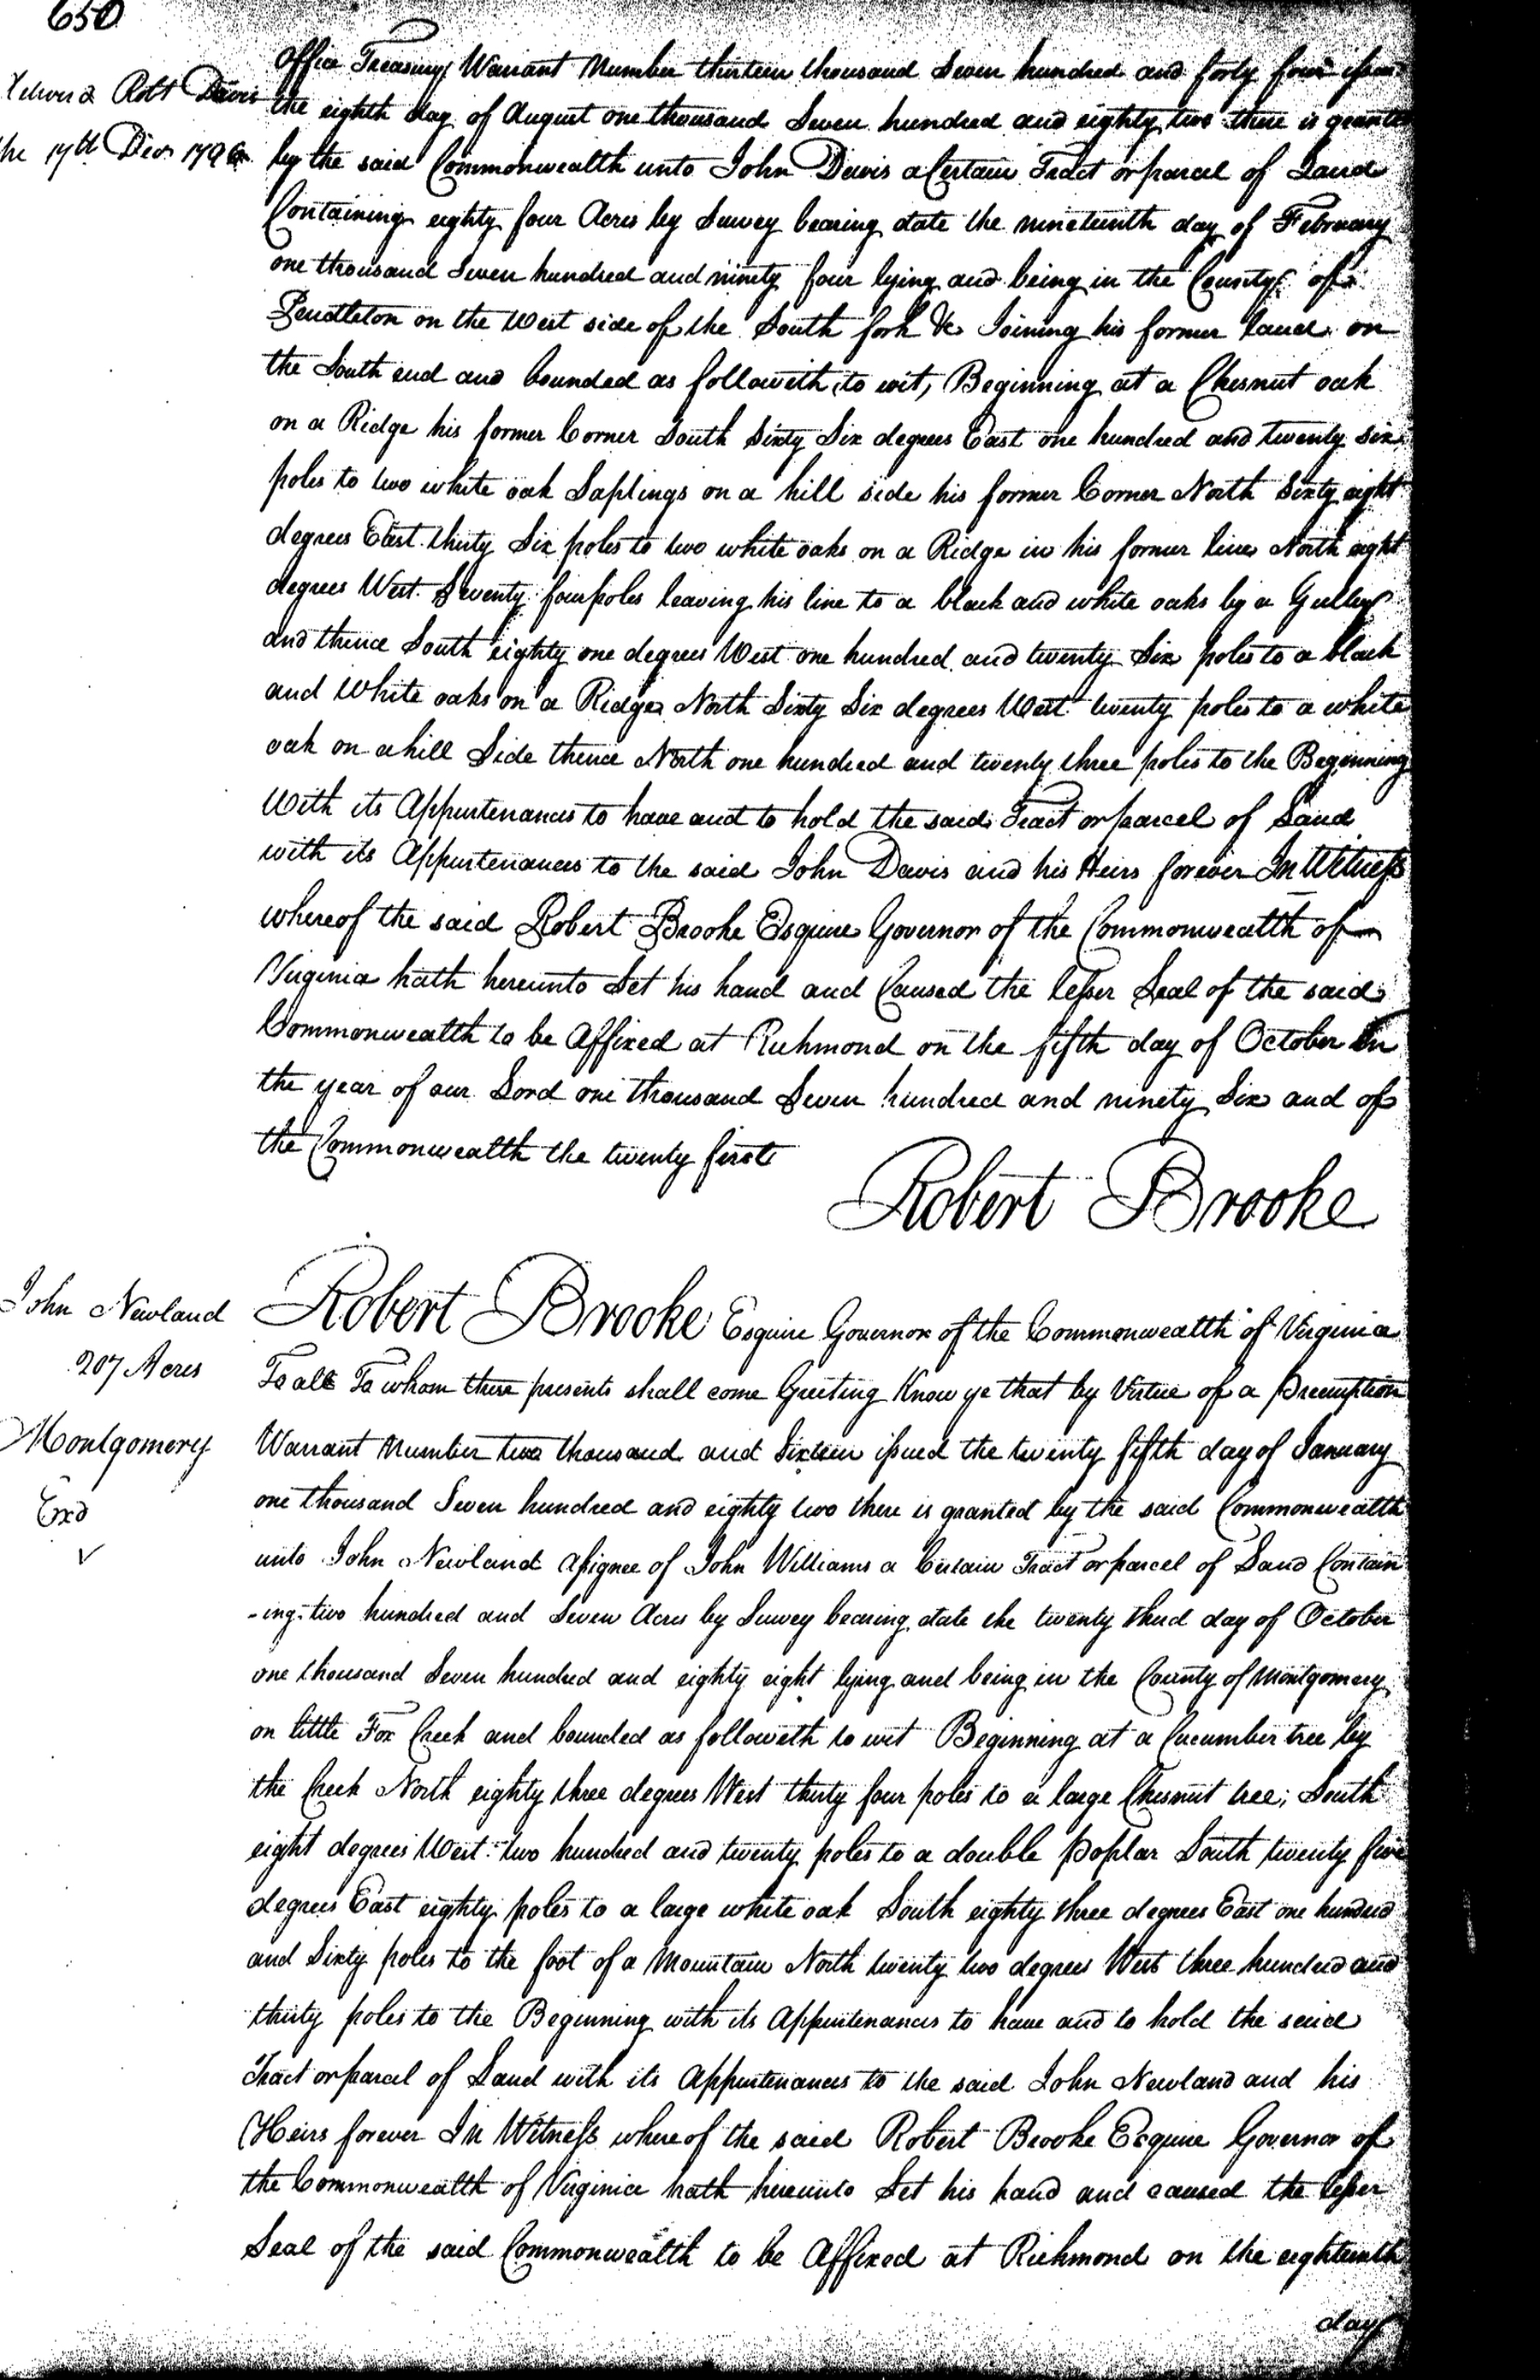 650
Robt Davis
17th Decr 1796
office Treasury Warrant Number thirteen thousand Seven hundred and forty four
the eighth day of August one thousand Seven hundred and eighty two there is granted
by the said Commonwealth unto John Davis a Certain Tract or parcel of Land
Containing eighty four Acres by Survey bearing date the nineteenth day of February
one thousand Seven hundred and ninety four lying and being in the County of
Pendleton on the West side of the South fork & Joining his former land on
the South end and bounded as followeth, to wit, Beginning at a Chesnut oak
on a Ridge his former Corner South Sixty Six degrees East one hundred and twenty six
poles to two white oak Saplings on a hill side his former Corner North Sixty eight
degrees East thirty Six poles to two white oaks on a Ridge in his former line North eight
degrees West Seventy four poles leaving his line to a black and white oaks by a Gulley
and thence South eighty one degrees West one hundred and twenty Six poles to a black
and White oaks on a Ridge North Sixty Six degrees West twenty poles to a white
oak on a hill Side thence North one hundred and twenty three poles to the Beginning
With its Appurtenances to have and to hold the said Tract or parcel of Land
with its Appurtenances to the said John Davis and his Heirs forever In Witness
whereof the said Robert Brooke Esquire Governor of the Commonwealth of
Virginia hath hereunto Set his hand and Caused the lesser Seal of the said
Commonwealth to be Affixed at Richmond on the fifth day of October In
the year of our Lord one thousand Seven hundred and ninety Six and of
the Commonwealth the twenty first
Robert Brooke
John Newland
207 Acres
Montgomery
Exd
Robert Brooke Esquire Governor of the Commonwealth of Virginia
To all To whom these presents shall come Greeting Know ye that by Virtue of a Preemption
Warrant Number two thousand and Sixteen issued the twenty fifth day of January
one thousand Seven hundred and eighty two there is granted by the said Commonwealth
unto John Newland Assignee of John Williams a Certain Tract or parcel of Land Contain
-ing two hundred and Seven Acres by Survey bearing date the twenty third day of October
one thousand Seven hundred and eighty eight lying and being in the County of Montgomery
on little Fox Creek and bounded as followeth to wit Beginning at a Cucumber tree by
the Creek North eighty three degrees West thirty four poles to a large Chesnut tree; South
eight degrees West two hundred and twenty poles to a double poplar South twenty five
degrees East eighty poles to a large white oak South eighty three degrees East one hundred
and Sixty poles to the foot of a Mountain North twenty two degrees West three hundred and
thirty poles to the Beginning with its Appurtenances to have and to hold the said
Tract or parcel of Land with its Appurtenances to the said John Newland and his
Heirs forever In Witness whereof the said Robert Brooke Esquire Governor of
the Commonwealth of Virginia hath hereunto Set his hand and caused the lesser
Seal of the said Commonwealth to be Affixed at Richmond on the eighteenth
day